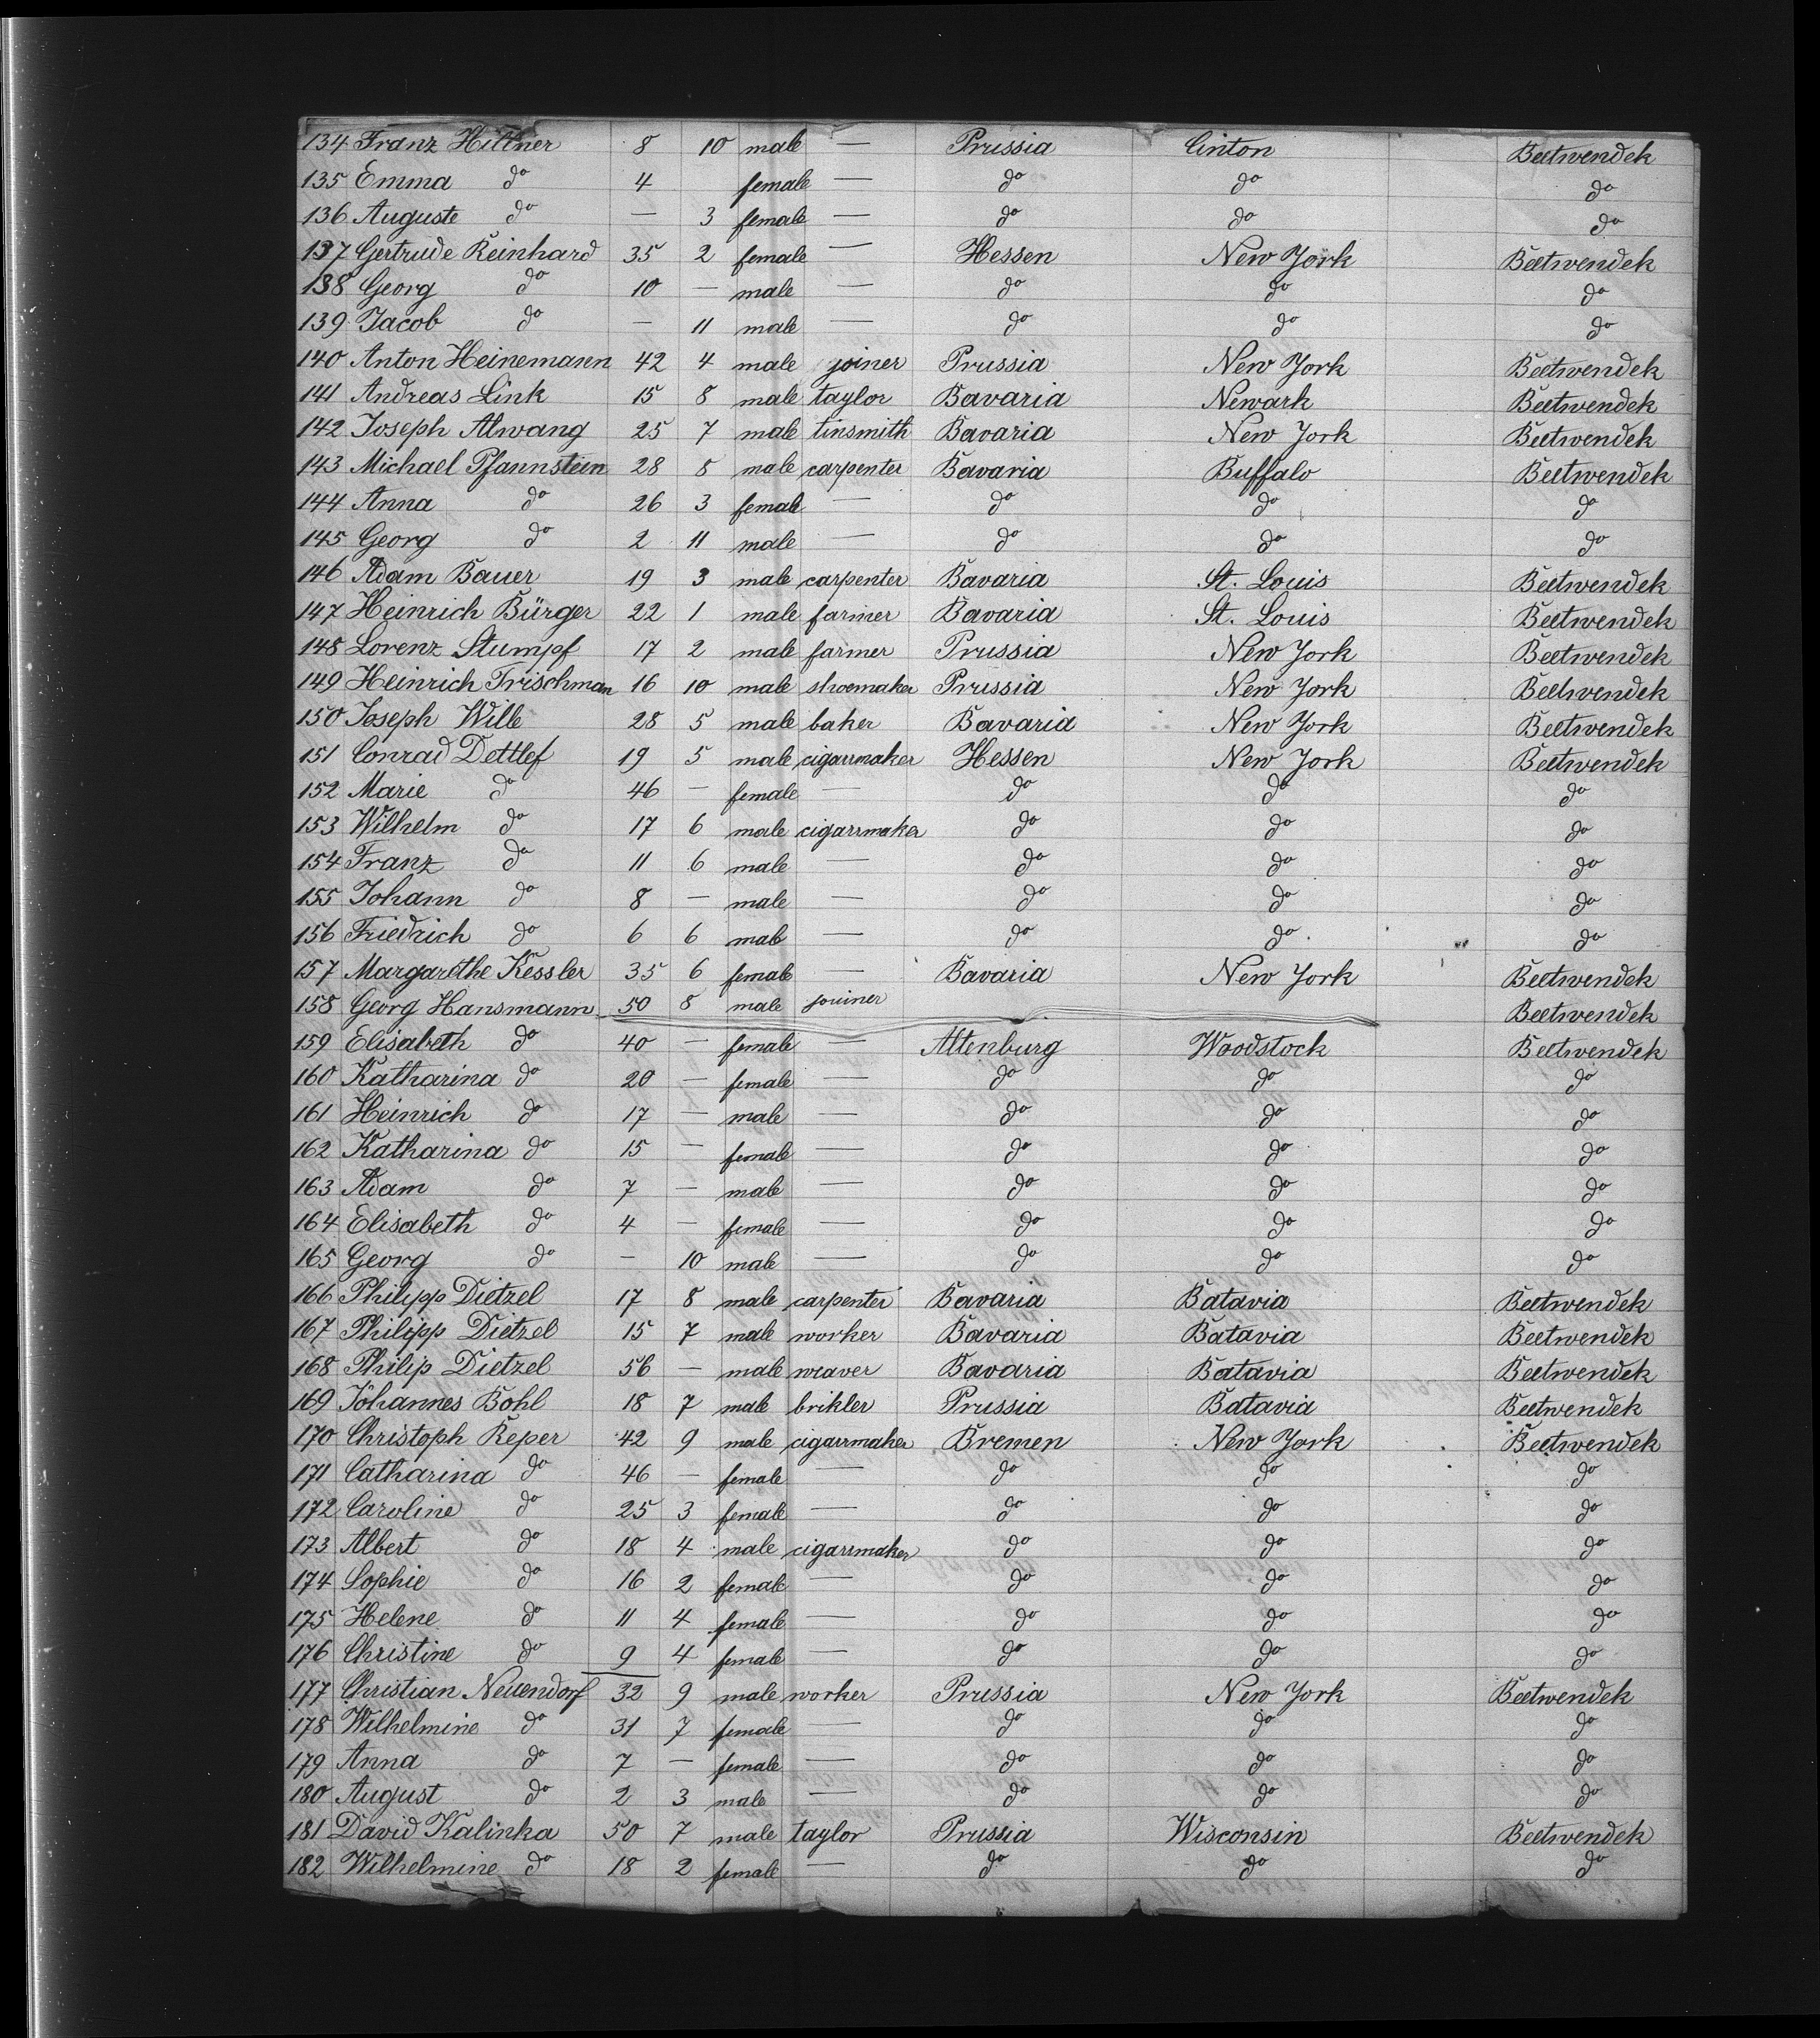 134 Franz Hittner 8 10 male — Prussia Cinton Beetwendek
135 Emma do 4 female — do do do
136 Auguste do — 3 female — do do do
137 Gertrude Reinhard 35 2 female — Hessen New York Beetwendek
138 Georg do 10 — male — do do do
139 Jacob do — 11 male — do do do
140 Anton Heinemann 42 4 male joiner Prussia New York Beetwendek
141 Andreas Link 15 8 male taylor Bavaria Newark Beetwendek
142 Joseph Alwang 25 7 male tinsmith Bavaria New York Beetwendek
143 Michael Pfannstein 28 8 male carpenter Bavaria Buffalo Beetwendek
144 Anna do 26 3 female — do do do
145 Georg do 2 11 male — do do do
146 Adam Bauer 19 3 male carpenter Bavaria St. Louis Beetwendek
147 Heinrich Bürger 22 1 male farmer Bavaria St. Louis Beetwendek
148 Lorenz Stumpf 17 2 male farmer Prussia New York Beetwendek
149 Heinrich Frischman 16 10 male shoemaker Prussia New York Beetwendek
150 Joseph Wille 28 5 male baker Bavaria New York Beetwendek
151 Conrad Dettlef 19 5 male cigarrmaker Hessen New York Beetwendek
152 Marie do 46 — female — do do do
153 Wilhelm do 17 6 male cigarrmaker do do do
154 Franz do 11 6 male — do do do
155 Johann do 8 — male — do do do
156 Friedrich do 6 6 male — do do do
157 Margarethe Kessler 35 6 female — Bavaria New York Beetwendek
158 Georg Hansmann 50 8 male jouiner Beetwendek
159 Elisabeth do 40 — female — Altenburg Woodstock Beetwendek
160 Katharina do 20 — female — do do do
161 Heinrich do 17 — male — do do do
162 Katharina do 15 — female — do do do
163 Adam do 7 — male — do do do
164 Elisabeth do 4 — female — do do do
165 Georg do — 10 male — do do do
166 Philipp Dietzel 17 8 male carpenter Bavaria Batavia Beetwendek
167 Philipp Dietzel 15 7 male worker Bavaria Batavia Beetwendek
168 Philip Dietzel 56 — male weaver Bavaria Batavia Beetwendek
169 Johannes Bohl 18 7 male brikler Prussia Batavia Beetwendek
170 Christoph Reper 42 9 male cigarrmaker Bremen New York Beetwendek
171 Catharina do 46 — female — do do do
172 Caroline do 25 3 female — do do do
173 Albert do 18 4 male cigarrmaker do do do
174 Sophie do 16 2 female — do do do
175 Helene do 11 4 female — do do do
176 Christine do 9 4 female — do do do
177 Christian Neuendorf 32 9 male worker Prussia New York Beetwendek
178 Wilhelmine do 31 7 female — do do do
179 Anna do 7 — female — do do do
180 August do 2 3 male — do do do
181 David Kalinka 50 7 male taylor Prussia Wisconsin Beetwendek
182 Wilhelmine do 18 2 female — do do do